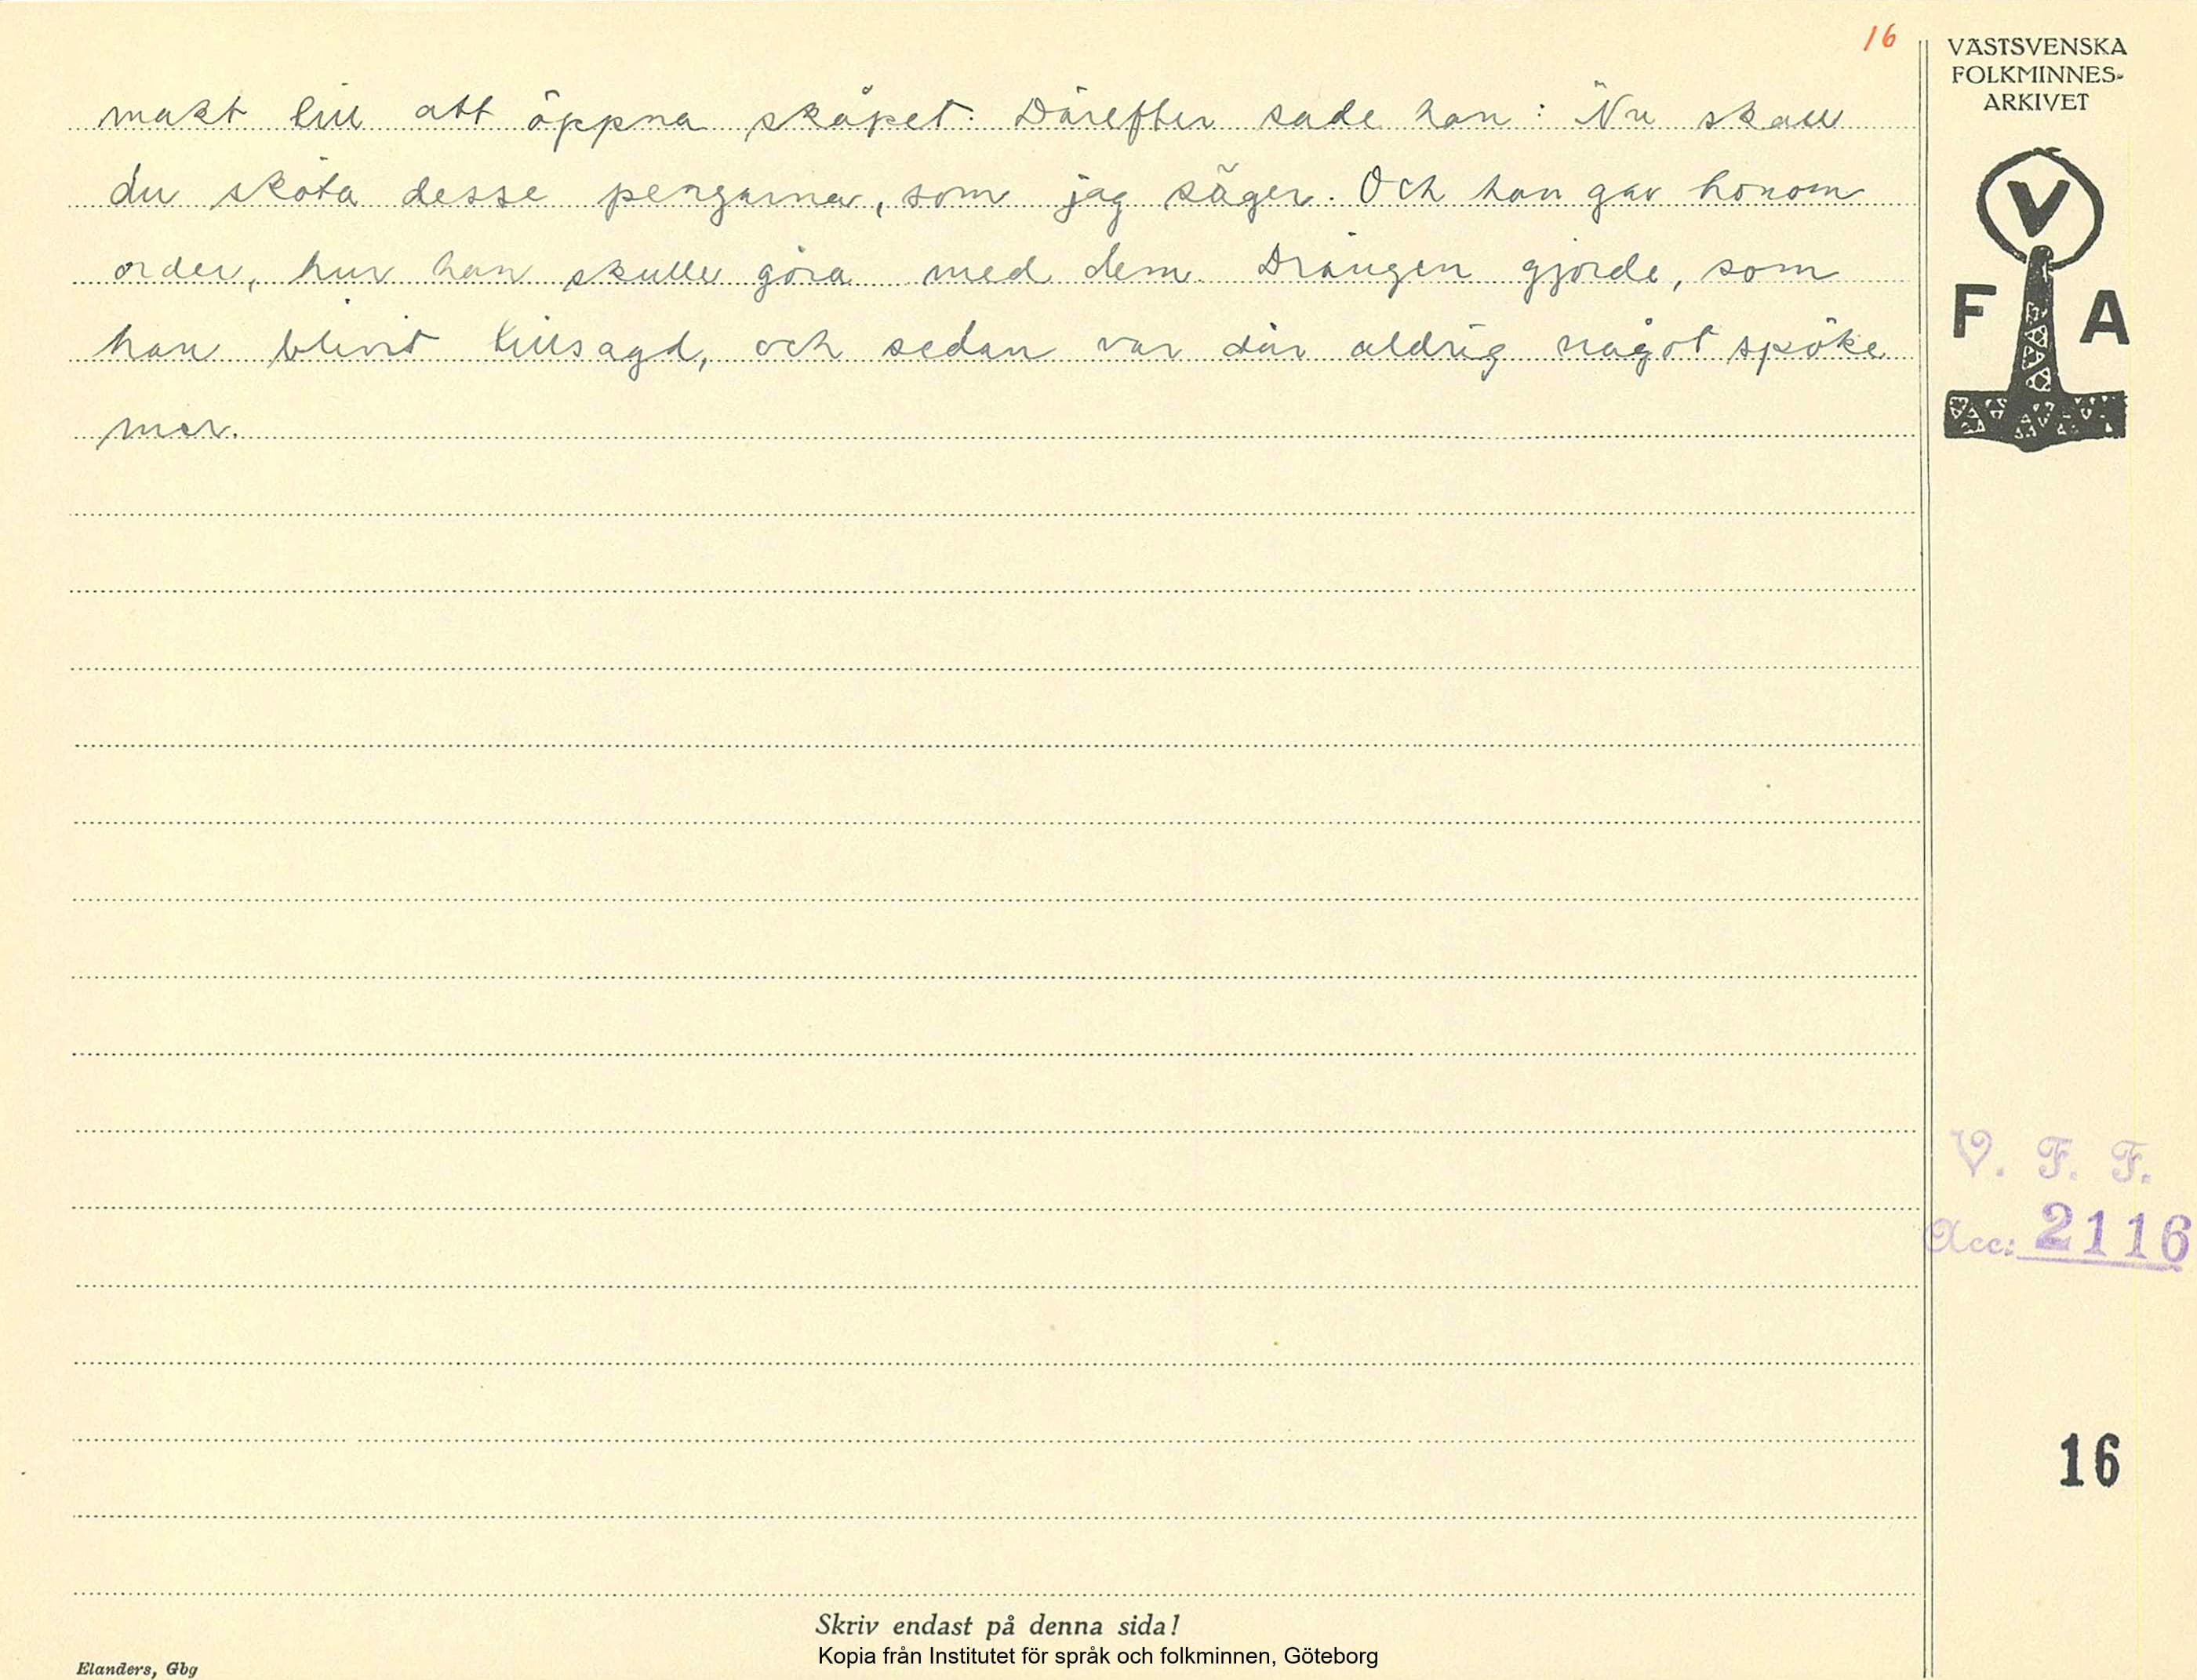 16
makt till att öppna skåpet. Därefter sade han: Nu skall
du sköta desse pengarna, som jag säger. Och han gav honom
order, hur han skulle göra med dem. Drängen gjorde, som
han blivit tillsagd, och sedan var där aldrig något spöke
mer.
VÄSTSVENSKA
FOLKMINNES-
ARKIVET
V
F A
V. F. F.
Acc: 2116
16
Skriv endast på denna sida!
Kopia från Institutet för språk och folkminnen, Göteborg
Elanders, Gbg